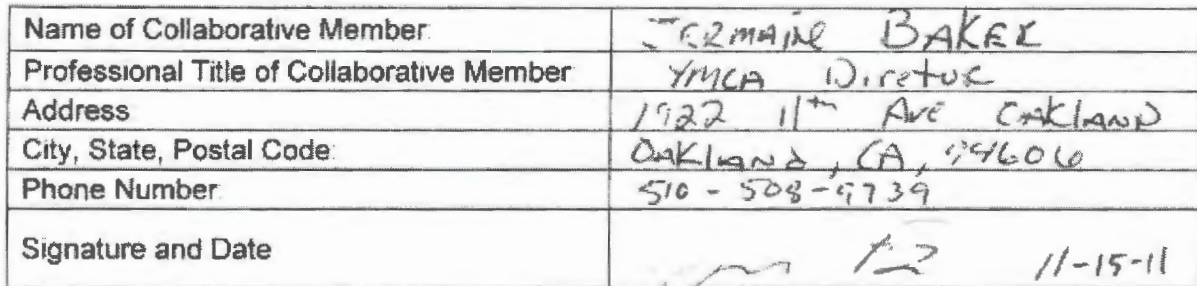 Name of Collaborative Member: JERMAINE BAKER
Professional Title of Collaborative Member YMCA Diretor
Address 1922 11th Ave OAKLAND
City, State, Postal Code: OAKLAND, CA, 94606
Phone Number 510 - 508 - 9739
Signature and Date 11-15-11